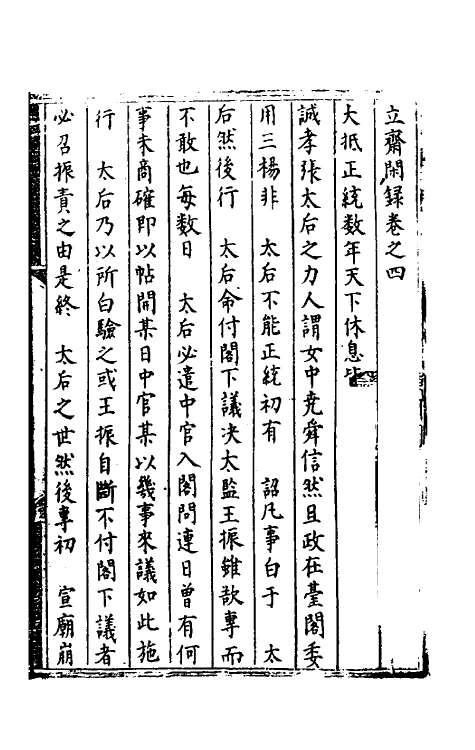 立齋閑録卷之四
大抵正統数年天下休息皆
誠孝張太后之力人謂女中堯舜信然且政在臺閣委
用三楊非　太后不能正統初有　詔凡事白于　太
后然後行　太后命付閣下議决太監王振雖欲專而
不敢也每数日　太后必遣中官入閣問連日曾有何
事来商確即以帖開某日中官某以幾事來議如此施
行　太后乃以所白驗之或王振自斷不付閣下議者
必召振責之由是終　太后之世然後專初　宣廟崩